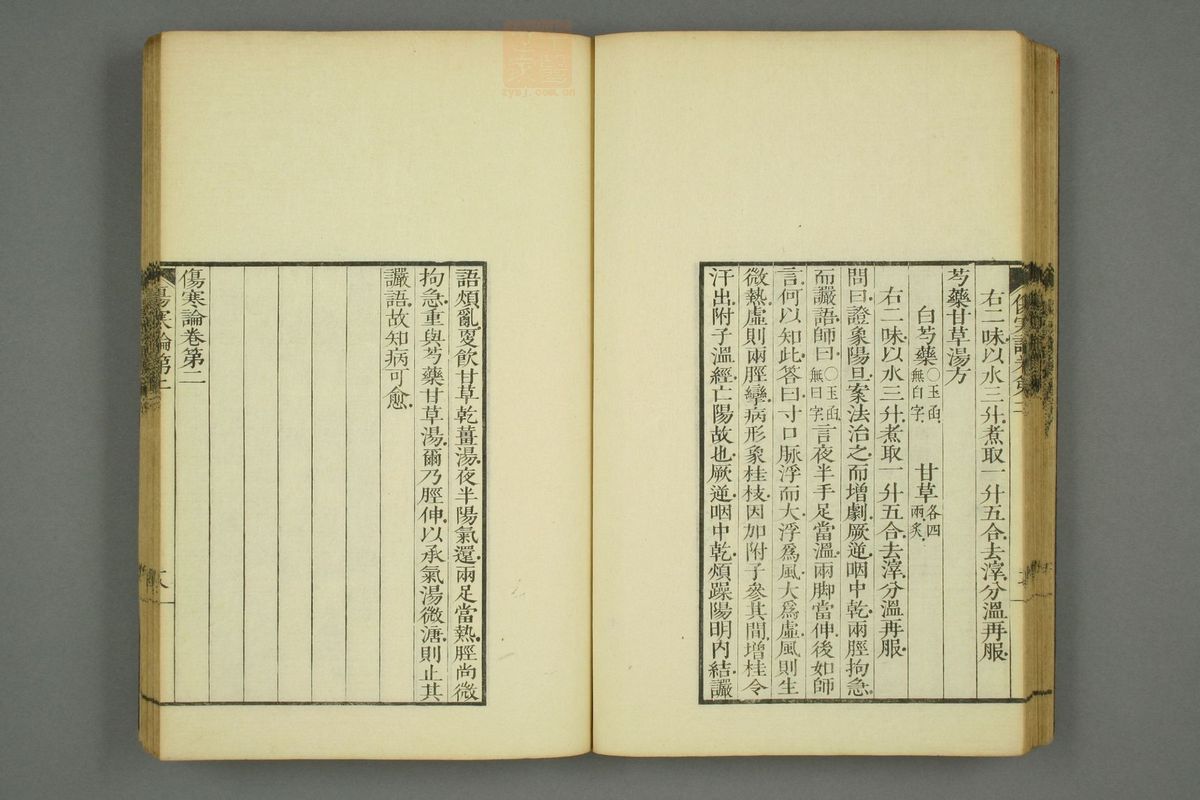 右二味以水三升煮取一升五合去滓分溫再服
芍藥甘草湯方
白芍藥〇玉函無白字 甘草各四兩炙
右二味以水三升煮取一升五合去滓分溫再服
問曰證象陽旦案法治之而增劇厥逆咽中乾兩脛拘急
而讝語師曰〇玉函無曰字言夜半手足當溫兩脚當伸後如師
言何以知此答曰寸口脈浮而大浮爲風大爲虛風則生
微熱虛則兩脛攣病形象桂枝因加附子參其間增桂令
汗出附子溫經亡陽故也厥逆咽中乾煩躁陽明內結讝
語煩亂更飲甘草乾薑湯夜半陽氣還兩足當熱脛尚微
拘急重與芍藥甘草湯爾乃脛伸以承氣湯微溏則止其
讝語故知病可愈
傷寒論卷第二
zysj.com.cn